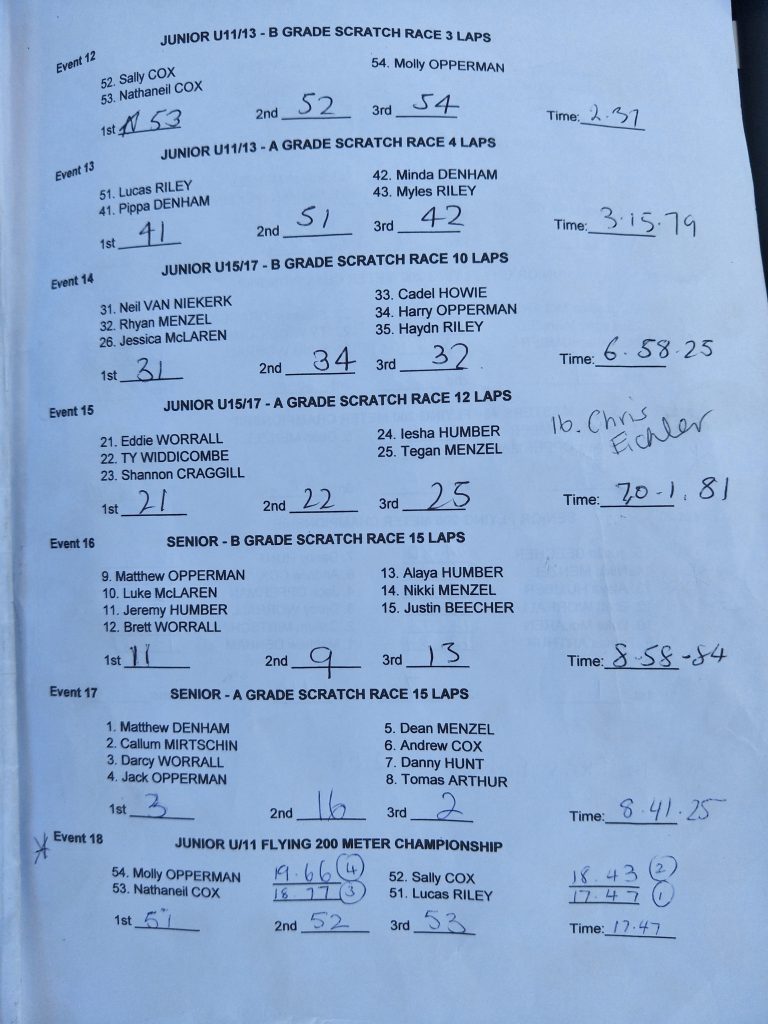 JUNIOR U11/13 - B GRADE SCRATCH RACE 3 LAPS
Event 12
52. Sally COX 54. Molly OPPERMAN
53. Nathaneil COX
1st 53 2nd 52 3rd 54 Time: 2.37
JUNIOR U11/13 - A GRADE SCRATCH RACE 4 LAPS
Event 13
51. Lucas RILEY 42. Minda DENHAM
41. Pippa DENHAM 43. Myles RILEY
1st 41 2nd 51 3rd 42 Time: 3.15.79
JUNIOR U15/17 - B GRADE SCRATCH RACE 10 LAPS
Event 14
31. Neil VAN NIEKERK 33. Cadel HOWIE
32. Rhyan MENZEL 34. Harry OPPERMAN
26. Jessica McLAREN 35. Haydn RILEY
1st 31 2nd 34 3rd 32 Time: 6.58.25
Event 15 JUNIOR U15/17 - A GRADE SCRATCH RACE 12 LAPS
21. Eddie WORRALL 24. Iesha HUMBER 16. Chris
22. TY WIDDICOMBE 25. Tegan MENZEL Eichler
23. Shannon CRAGGILL
1st 21 2nd 22 3rd 25 Time: 81
Event 16 SENIOR - B GRADE SCRATCH RACE 15 LAPS
9. Matthew OPPERMAN 13. Alaya HUMBER
10. Luke McLAREN 14. Nikki MENZEL
11. Jeremy HUMBER 15. Justin BEECHER
12. Brett WORRALL
1st 11 2nd 9 3rd 13 Time: 8.58-84
Event 17 SENIOR - A GRADE SCRATCH RACE 15 LAPS
1. Matthew DENHAM 5. Dean MENZEL
2. Callum MIRTSCHIN 6. Andrew COX
3. Darcy WORRALL 7. Danny HUNT
4. Jack OPPERMAN 8. Tomas ARTHUR
1st 3 2nd 16 3rd 2 Time: 8.41.25
Event 18 JUNIOR U/11 FLYING 200 METER CHAMPIONSHIP
54. Molly OPPERMAN 19.66 4 52. Sally COX 18.43 2
53. Nathaneil COX 18.77 3 51. Lucas RILEY 17.47 1
1st 51 2nd 52 3rd 53 Time: 17.47